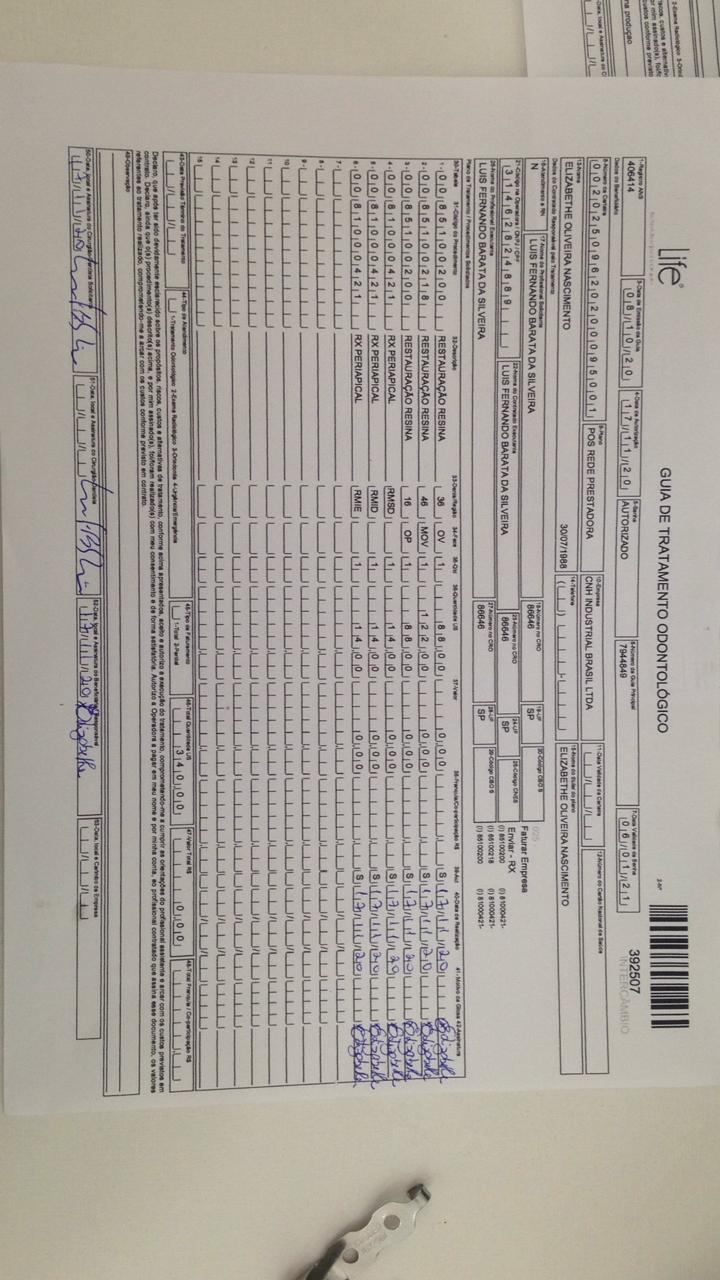 Life
GUIA DE TRATAMENTO ODONTOLÓGICO
2-Nº
392507
INTERCÂMBIO
1-Registro ANS
406414
3-Data de Emissão da Guia
08/10/20
4-Data de Autorização
17/11/20
5-Senha
AUTORIZADO
6-Número da Guia Principal
7944849
7-Data Validade da Senha
06/01/21
Dados do Beneficiário
8-Número da Carteira
9-Plano
POS REDE PRESTADORA
10-Empresa
CNH INDUSTRIAL BRASIL LTDA
11-Data Validade da Carteira
12-Número do Cartão Nacional de Saúde
13-Nome
ELIZABETHE OLIVEIRA NASCIMENTO
30/07/1988
14-Telefone
15-Nome do titular do plano
ELIZABETHE OLIVEIRA NASCIMENTO
Dados do Contratado Responsável pelo Tratamento
16-Atendimento a RN
N
17-Nome do Profissional Solicitante
LUIS FERNANDO BARATA DA SILVEIRA
18-Número no CRO
86646
19-UF
SP
20-Código CBO S
025
Faturar Empresa
21-Código na Operadora / CNPJ / CPF
31462824889
22-Nome do Contratado Executante
LUIS FERNANDO BARATA DA SILVEIRA
23-Número no CRO
86646
24-UF
SP
25-Código CNES
Enviar - RX
26-Nome do Profissional Executante
LUIS FERNANDO BARATA DA SILVEIRA
27-Número no CRO
86646
28-UF
SP
29-Código CBO S
(I) 85100200 (I) 81000421-
(I) 85100218 (I) 81000421-
(I) 85100200 (I) 81000421-
Plano de Tratamento / Procedimentos Solicitados
30-Tabela 31-Código do Procedimento 32-Descrição 33-Dente/Região 34-Face 35-Qtd 36-Quantidade US 37-Valor 38-Franquia/Co-participação R$ 39-Aut 40-Data de Realização 41-Motivo da Glosa 42-Assinatura
1- 00 85100200 RESTAURAÇÃO RESINA 36 OV 1 88,00 0,00 S 17/11/20 Elizabethe
2- 00 85100218 RESTAURAÇÃO RESINA 46 MOV 1 122,00 0,00 S 17/11/20 Elizabethe
3- 00 85100200 RESTAURAÇÃO RESINA 16 OP 1 88,00 0,00 S 17/11/20 Elizabethe
4- 00 81000421 RX PERIAPICAL RMSD 1 14,00 0,00 S 17/11/20 Elizabethe
5- 00 81000421 RX PERIAPICAL RMID 1 14,00 0,00 S 17/11/20 Elizabethe
6- 00 81000421 RX PERIAPICAL RMIE 1 14,00 0,00 S 17/11/20 Elizabethe
7-
8-
9-
10
11
12
13
14
15
43-Data Previsão Término do Tratamento
44-Tipo de Atendimento
1-Tratamento Odontológico 2-Exame Radiológico 3-Ortodontia 4-Urgência/Emergência
45-Tipo de Faturamento
1-Total 2-Parcial
46-Total Quantidade US
340,00
47-Valor Total R$
0,00
48-Total Franquia / Co-participação R$
Declaro, que após ter sido devidamente esclarecido sobre os propósitos, riscos, custos e alternativas de tratamento, conforme acima apresentados, aceito e autorizo a execução do tratamento, comprometendo-me a cumprir as orientações do profissional assistente e arcar com os custos previstos em
contrato. Declaro, ainda que o(s) procedimento(s) descrito(s) acima, e por mim assinado(s), foi/foram realizado(s) com meu consentimento e de forma satisfatória. Autorizo a Operadora a pagar em meu nome e por minha conta, ao profissional contratado que assina esse documento, os valores
referentes ao tratamento realizado, comprometendo-me a arcar com os custos conforme previsto em contrato.
49-Observação
50-Data, local e Assinatura do Cirurgião-Dentista Solicitante
17/11/20
51-Data, local e Assinatura do Cirurgião-Dentista
52-Data, local e Assinatura do Beneficiário/Responsável
17/11/20 Elizabethe
53-Data, local e Carimbo da Empresa